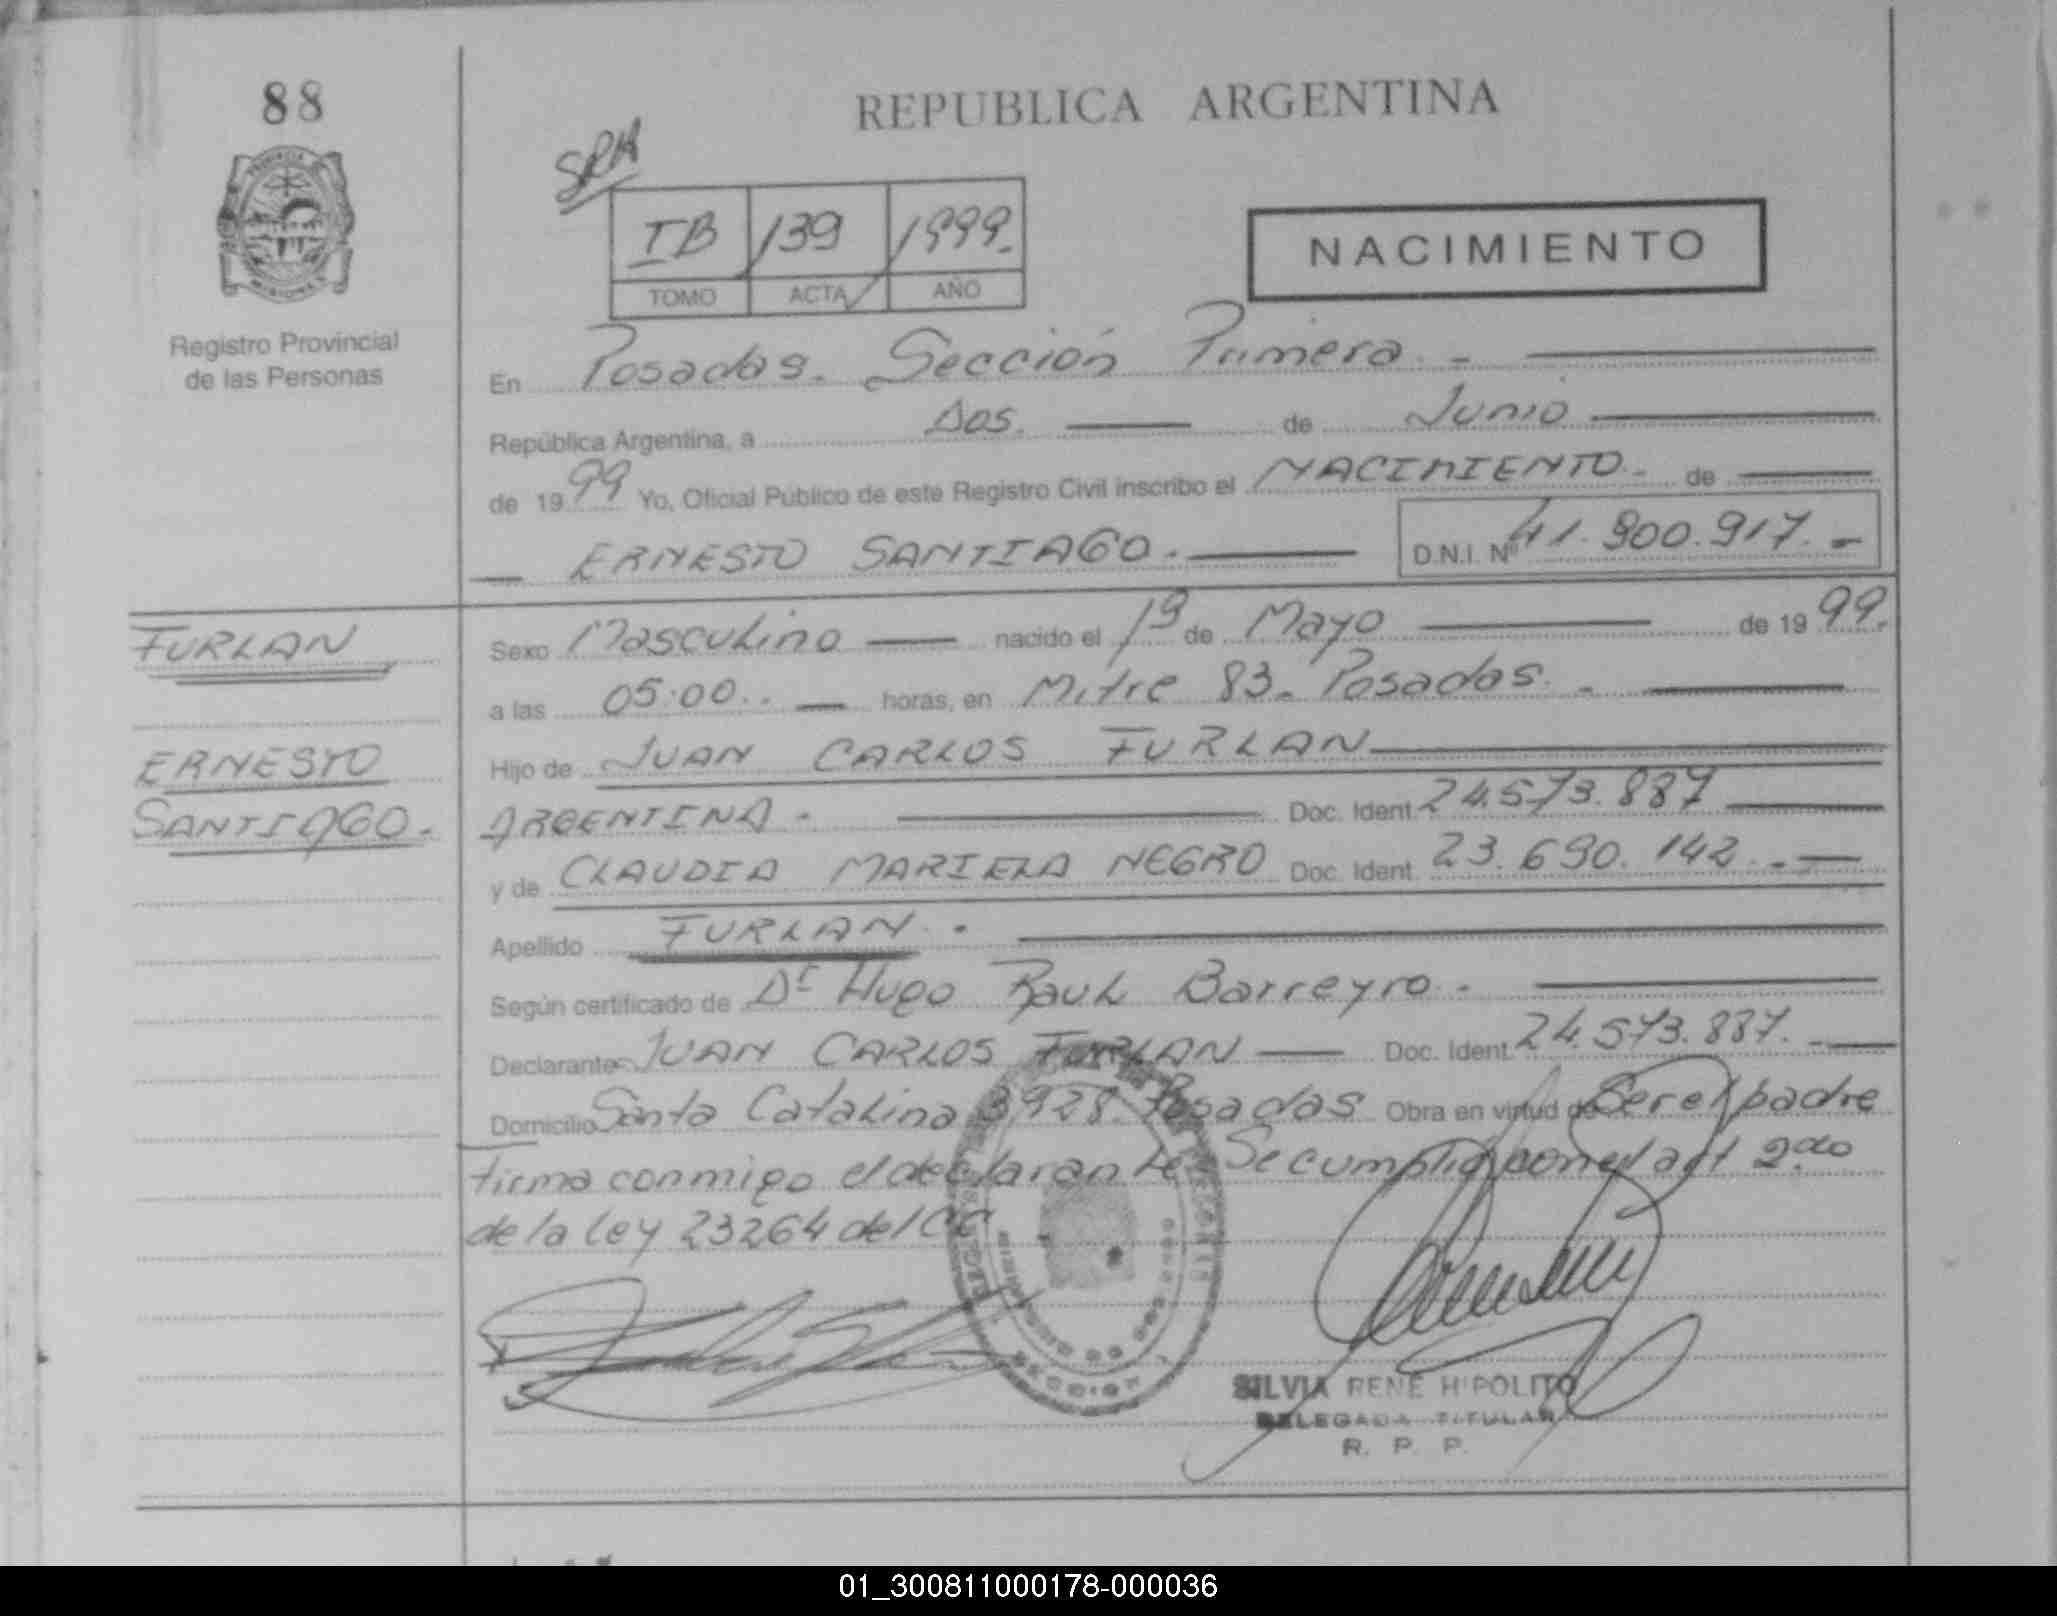 88
REPUBLICA ARGENTINA
SRA
IB 139 1999.
TOMO ACTA AÑO
NACIMIENTO
Registro Provincial
de las Personas
En Posadas. Sección Primera. -
República Argentina, a Dos. de Junio
de 1999 Yo, Oficial Público de este Registro Civil inscribo el NACIMIENTO.- de
ERNESTO SANTIAGO. D.N.I. Nº 41.900.917.-
FURLAN
ERNESTO
SANTIAGO.
Sexo Masculino nacido el 19 de Mayo de 1999.
a las 05:00.. horas, en Mitre 83. Posadas. -
Hijo de JUAN CARLOS FURLAN
ARGENTINA. Doc. Ident. 24.573.887
y de CLAUDIA MARIELA NEGRO Doc. Ident. 23.690.142.-
Apellido FURLAN.
Según certificado de Dr Hugo Raul Barreyro.
Declarante JUAN CARLOS FURLAN Doc. Ident. 24.573.887.-
Domicilio Santa Catalina 3928. Posadas Obra en virtud de Ser el padre
firma conmigo el declarante Se cumplió con el art 2do
de la ley 23264 del CC
SECCION 1
SILVIA RENE HIPOLITO
DELEGADA TITULAR
R. P. P.
01_300811000178-000036